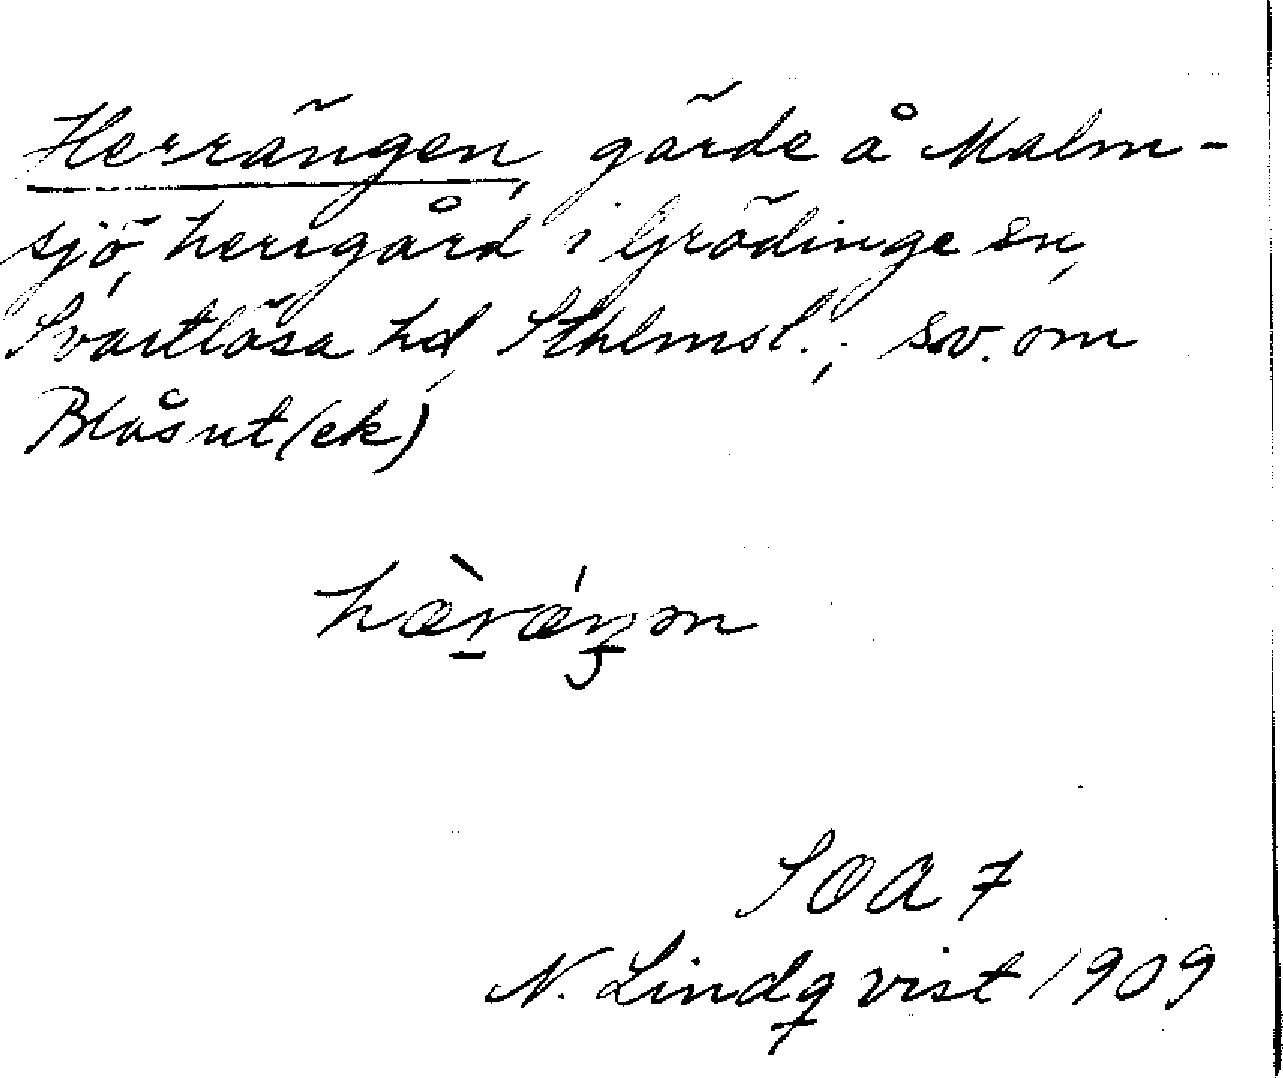 Herrängen, gärde å Malm-
sjö, herrgård i Grödinge sn,
Svartlösa hd, Sthlmsl.; sv. om
Blåsut(ek)
hæ̀rǽŋən
SOA 7
N. Lindqvist 1909